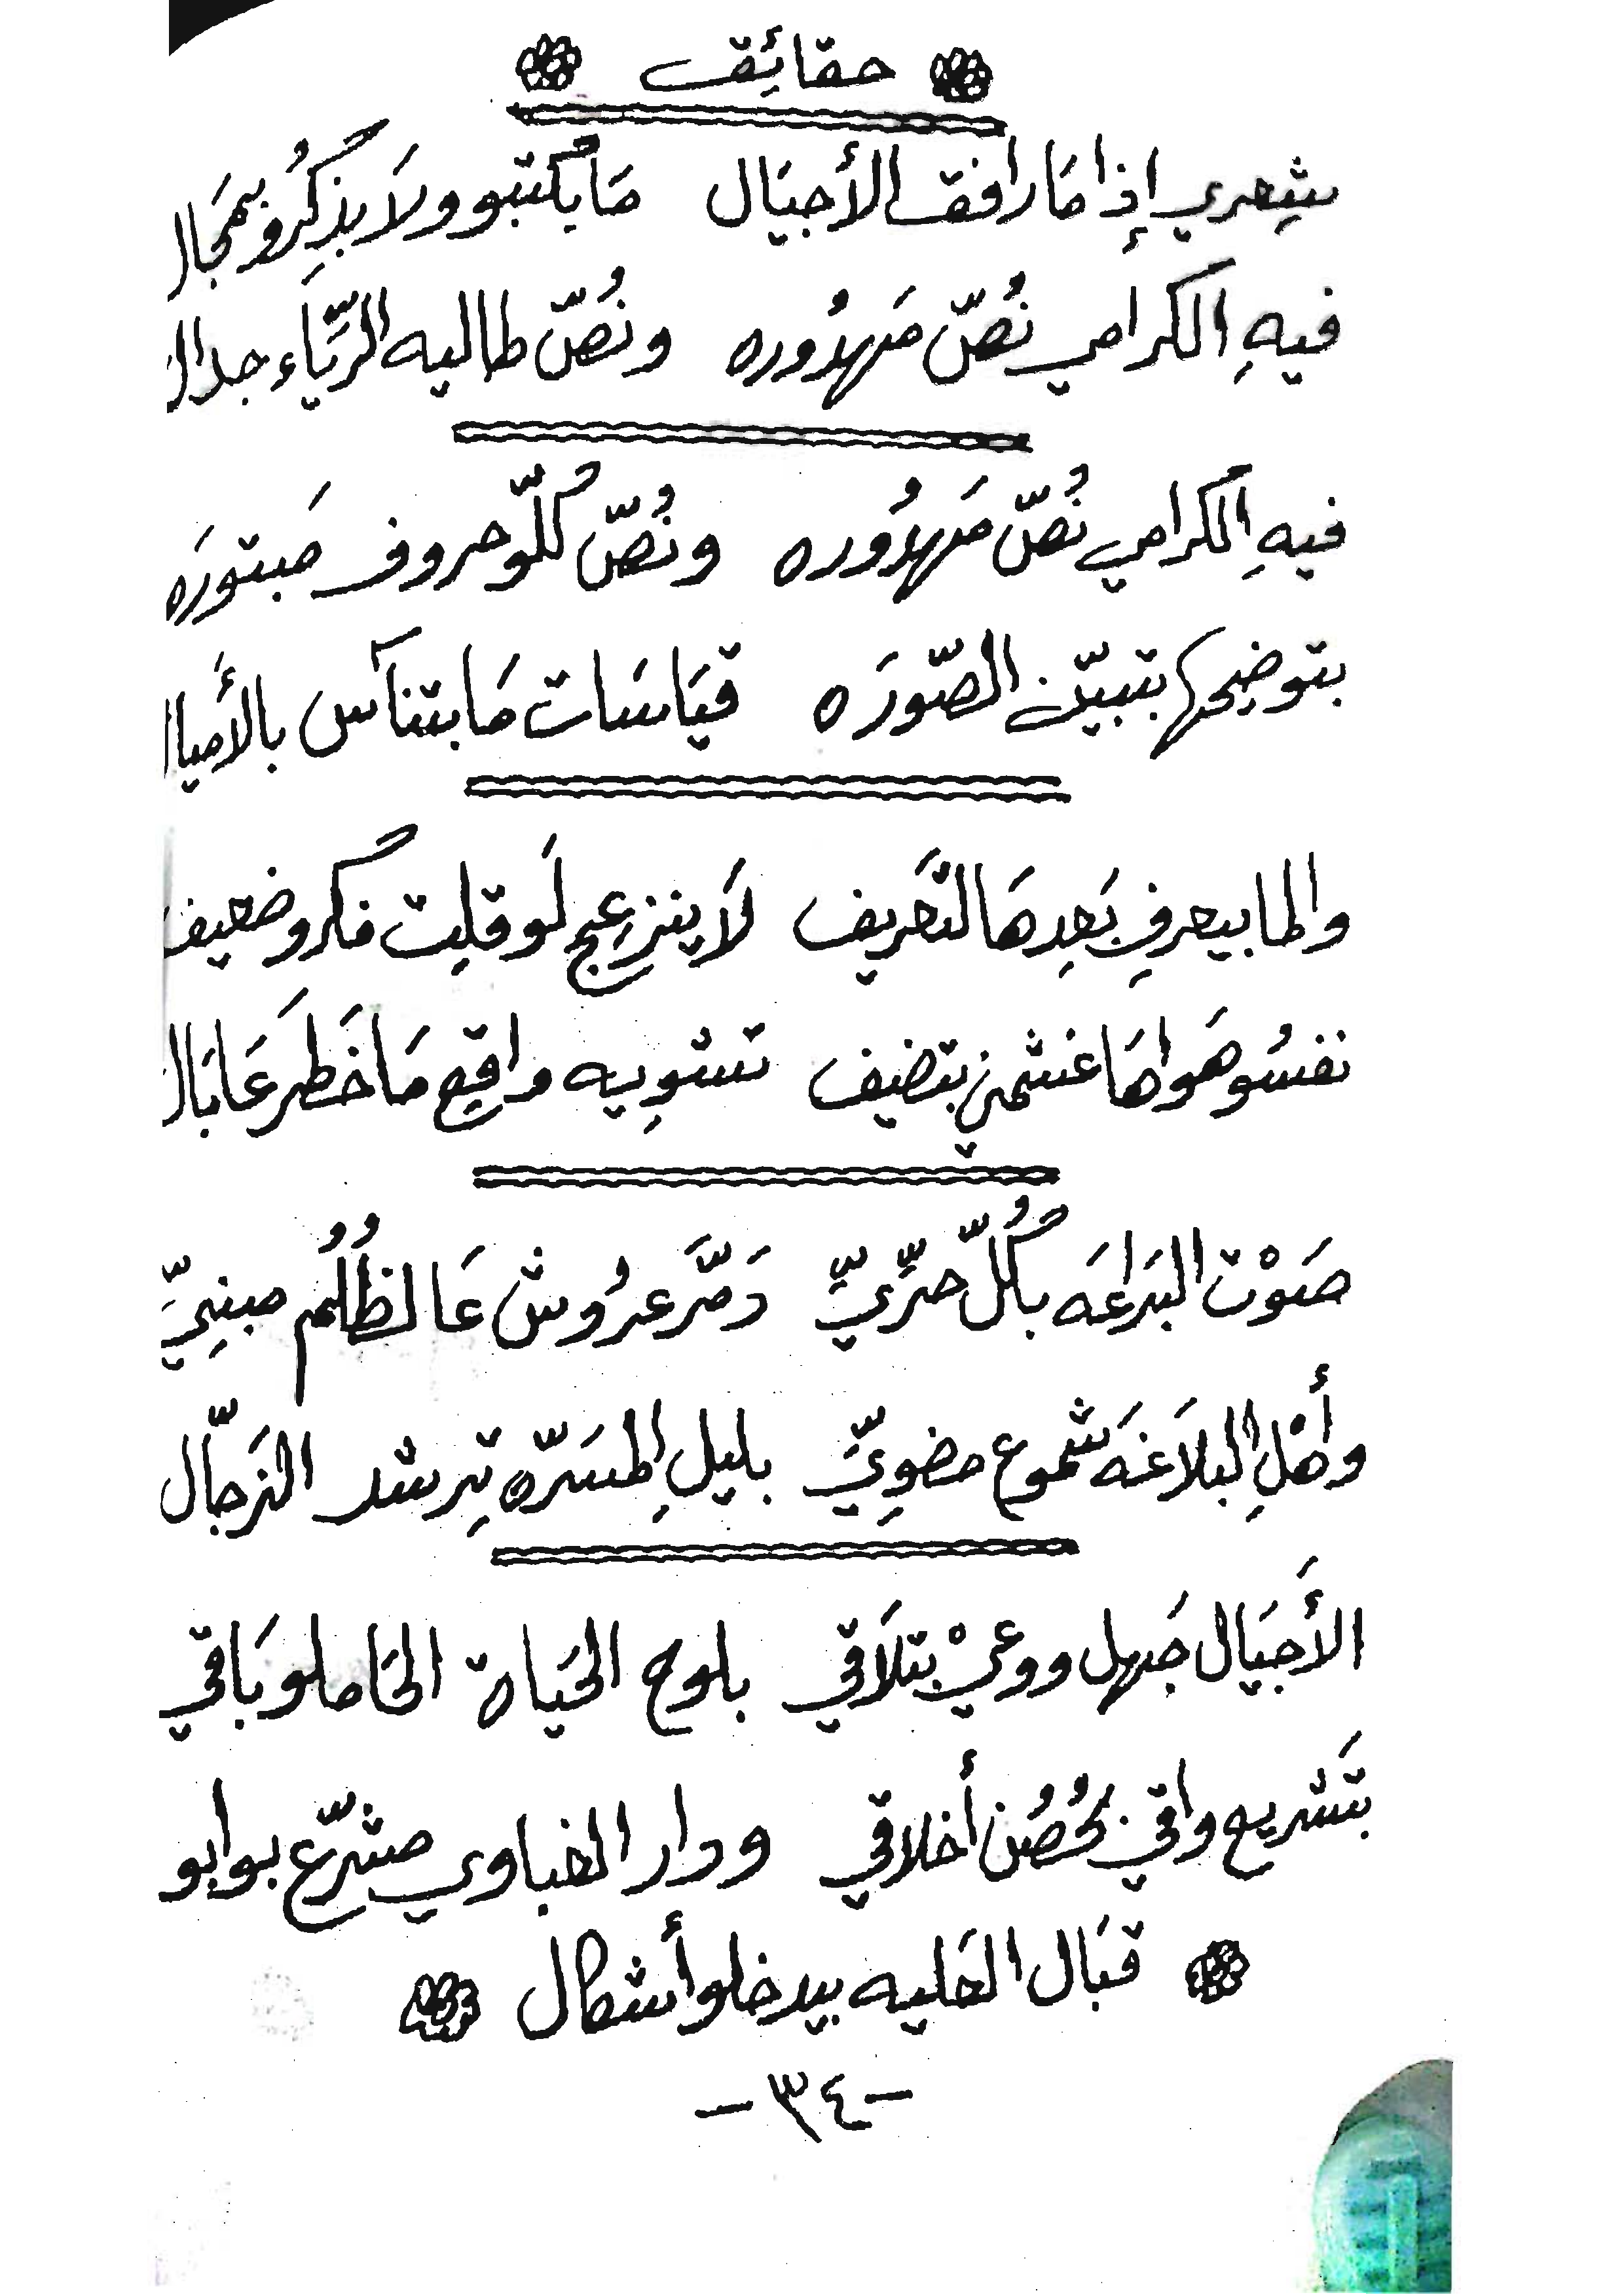 حقائق
شعري إذا مَا رافق الأجيَال مَا بُكتبو ولَا بذِكرُو بمَجَال
فيهِ الكرامي نُصّ مَهدُوره ونُصّ طاليه الرِّيَاء جدال
فيهِ الكرامي نُصّ مَهدُوره ونُصّ كُلّو حروف مبتورَه
بتوضِيحها بتبيّن الصّورَه قيَاسَات مَا بتنآس بالأَميال
والما بيعرفِ بَعدِ هَالتّعَريف لَا ينزعِج لَو قلِت فكرو ضعيف
نفسُو هَواهَا غشمنِي بتضيف تشوِيه واقِع مَا خَطَر عَا بَال
صَوْت البَراعَه بكُلّ حرِّيِّ دَمَّر عرُوش عَا لظُلُم مبنِيِّ
وأهْلِ البلَاغَه شموع مضوِيِّ بليلِ المسَرّه تِرشد الزجّال
الأجيَال جَهل ووعيْ بتلَاقي بلوح الحَياة الحَاملو بَاقي
بتَشريع واقي بحُصُن أخلاقي ودار الغباوي مشرّع بوابو
قبَال الحَليه بيدخلو أشكال
-٣٤-